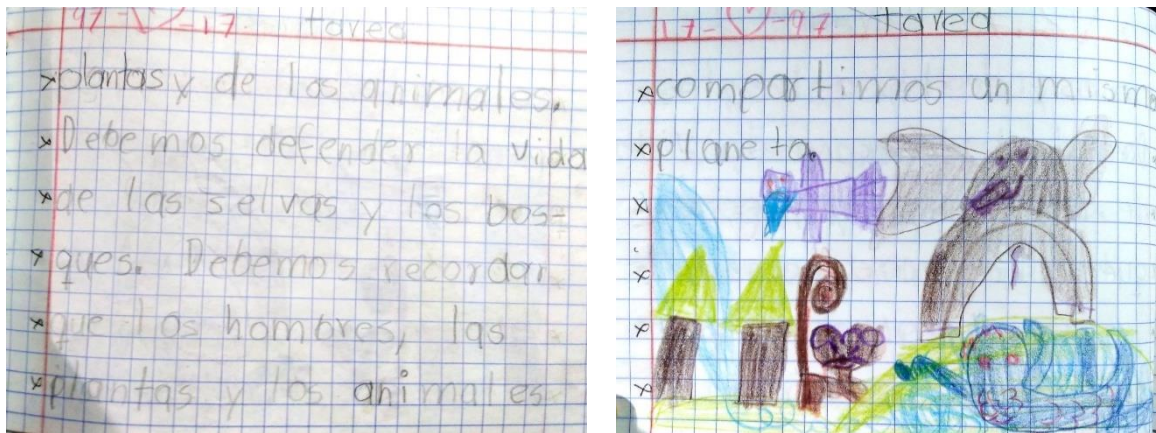 97-V-17. tarea
plantas y de los animales.
Debemos defender la vida
de las selvas y los bos-
ques. Debemos recordar
que los hombres, las
plantas y los animales
17-V-97 tarea
compartimos un mismo
planeta.